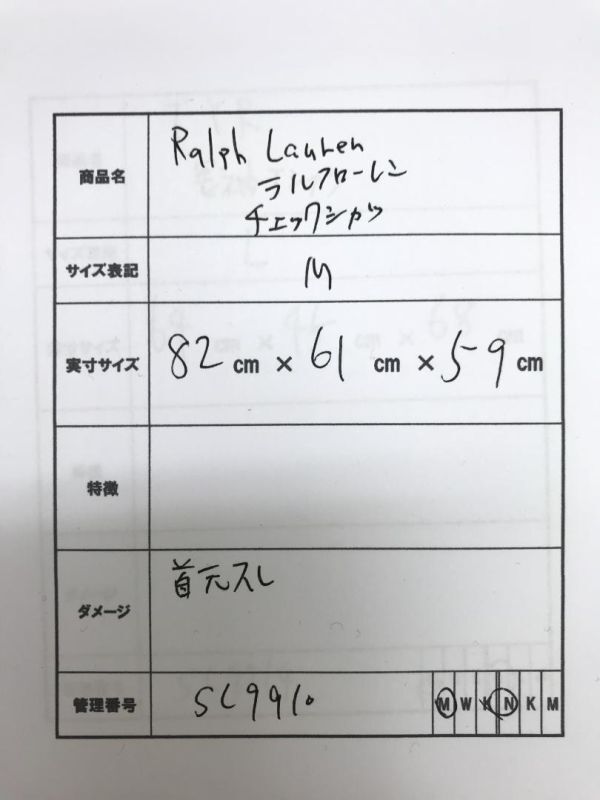 商品名
Ralph Lauren
ラルフローレン
チェックシャツ
サイズ表記
M
実寸サイズ
82 cm × 61 cm × 59 cm
特徴
ダメージ
首元スレ
管理番号
M W K N K M